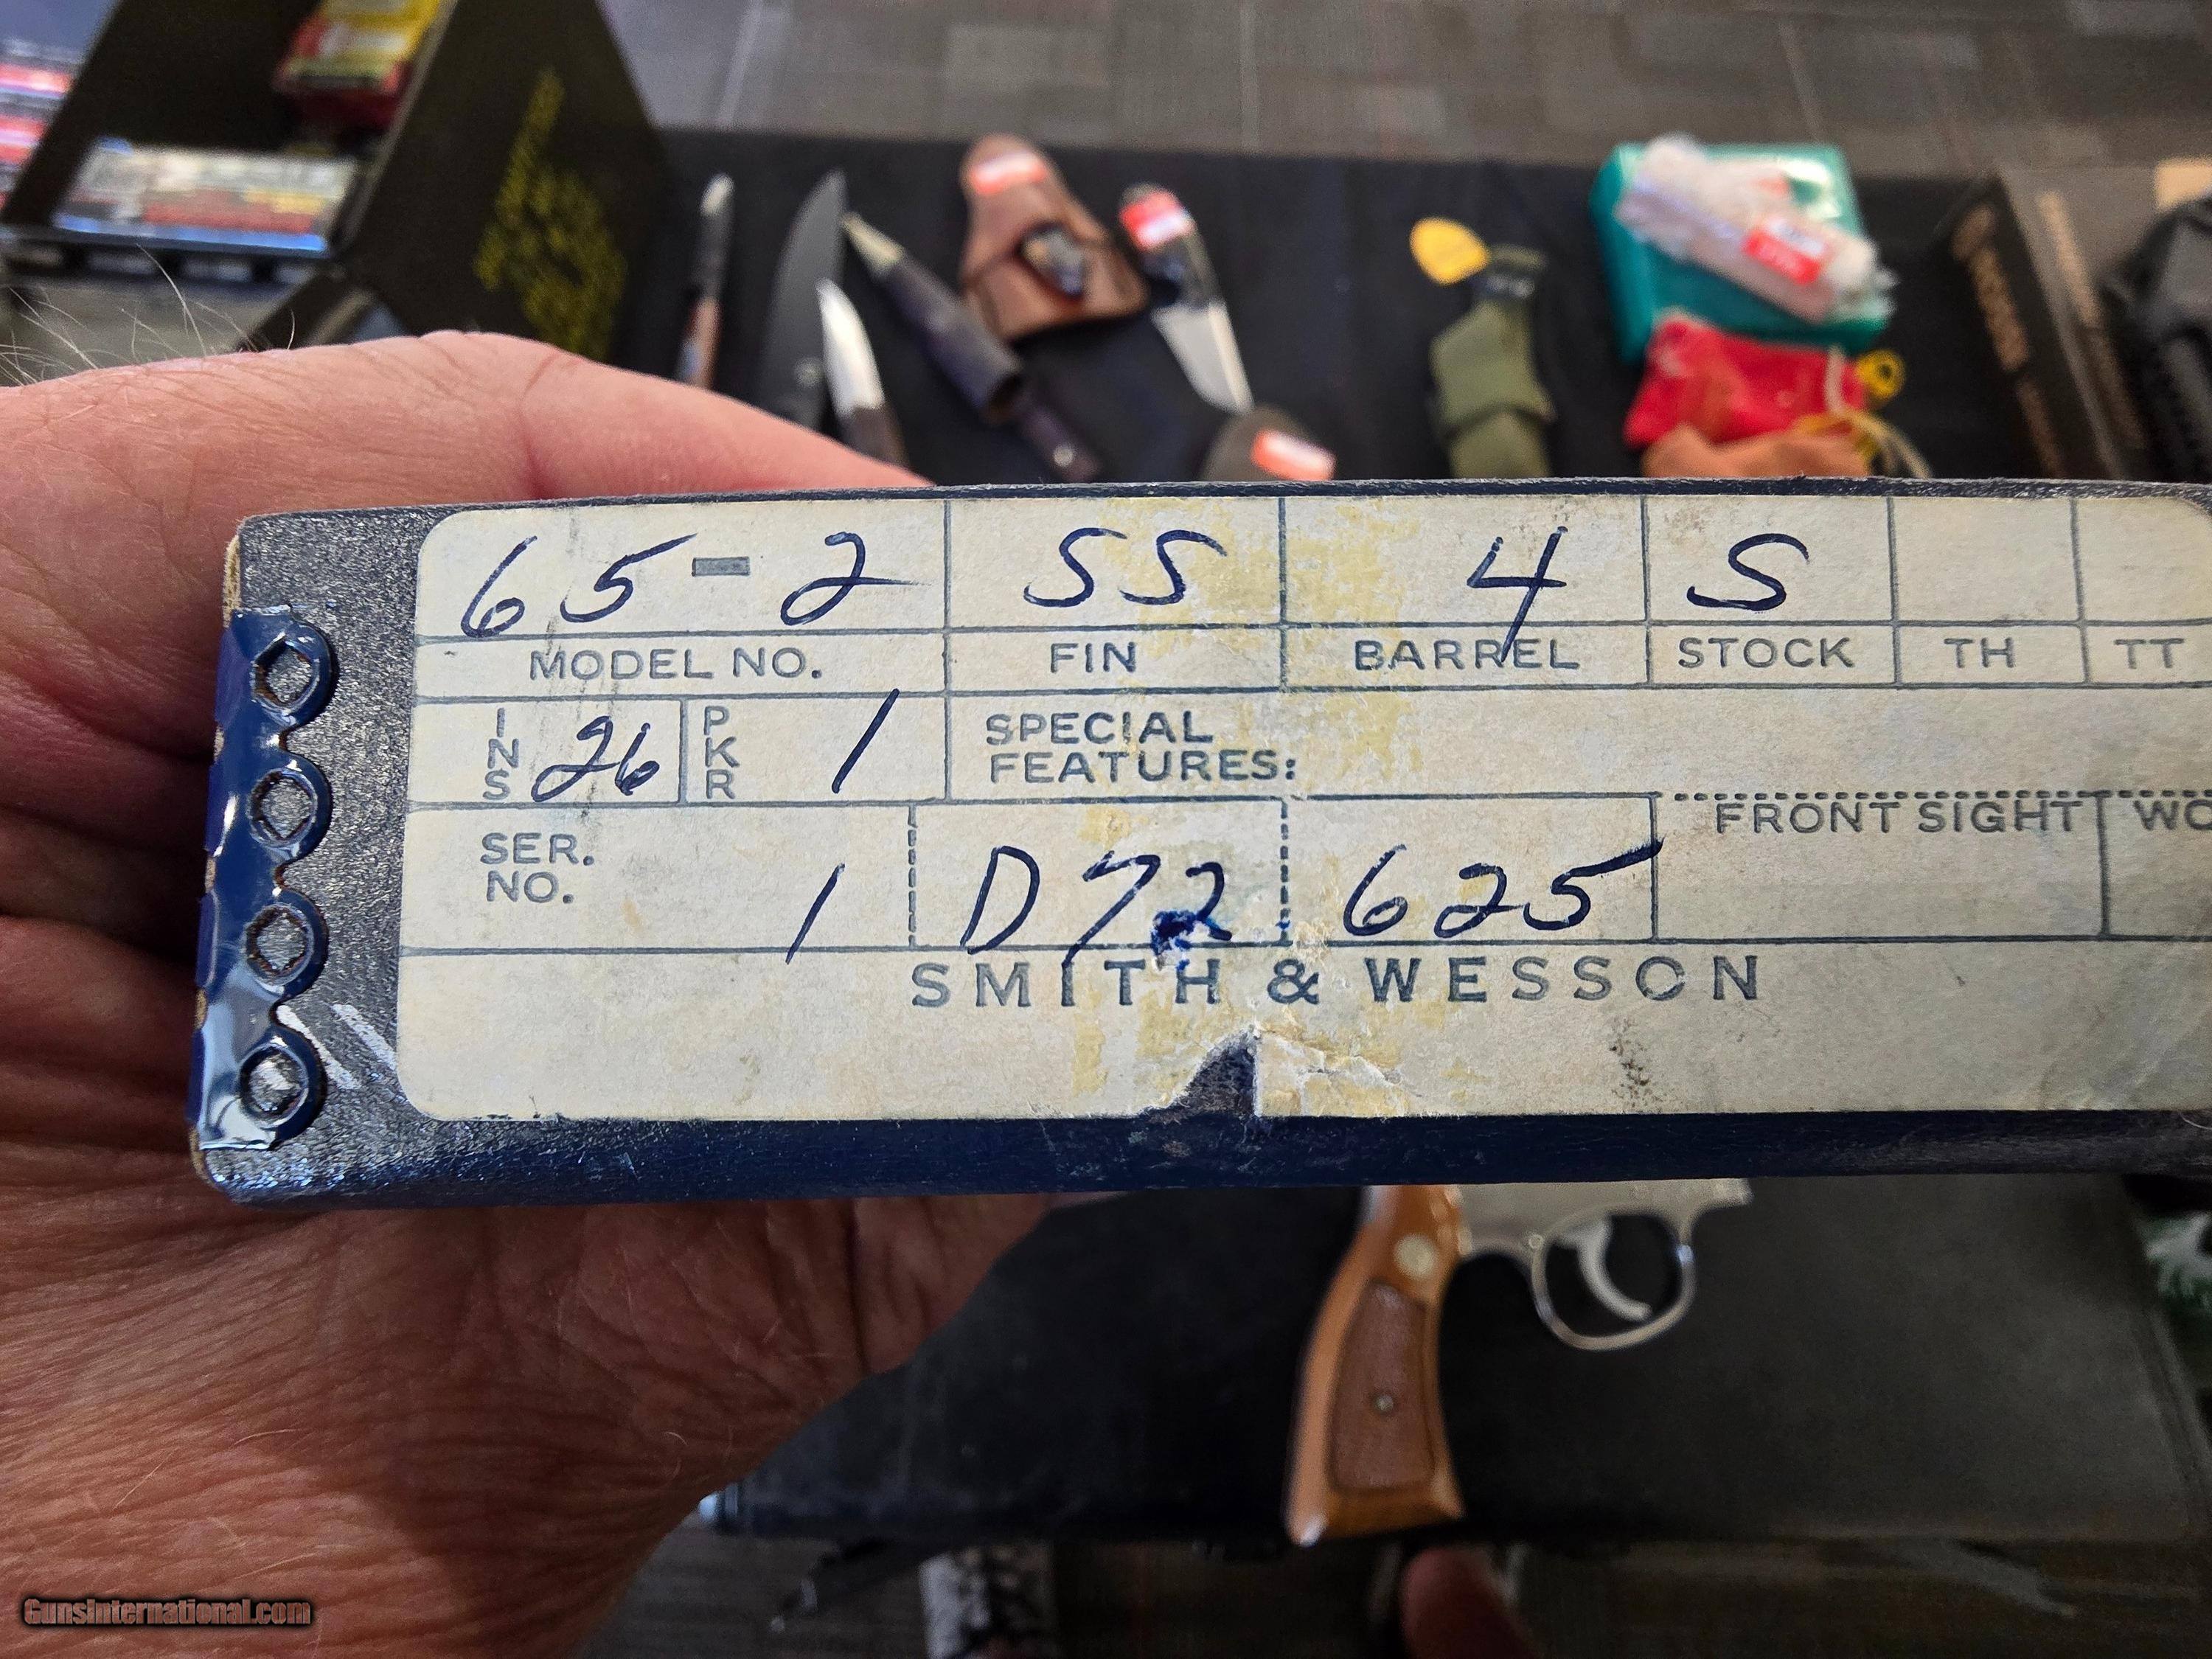 65-2 SS 4 S
MODEL NO. FIN BARREL STOCK TH TT
INS 26 PKR 1 SPECIAL FEATURES:
FRONT SIGHT
SER. NO. 1 D72 625
SMITH & WESSON
GunsInternational.com